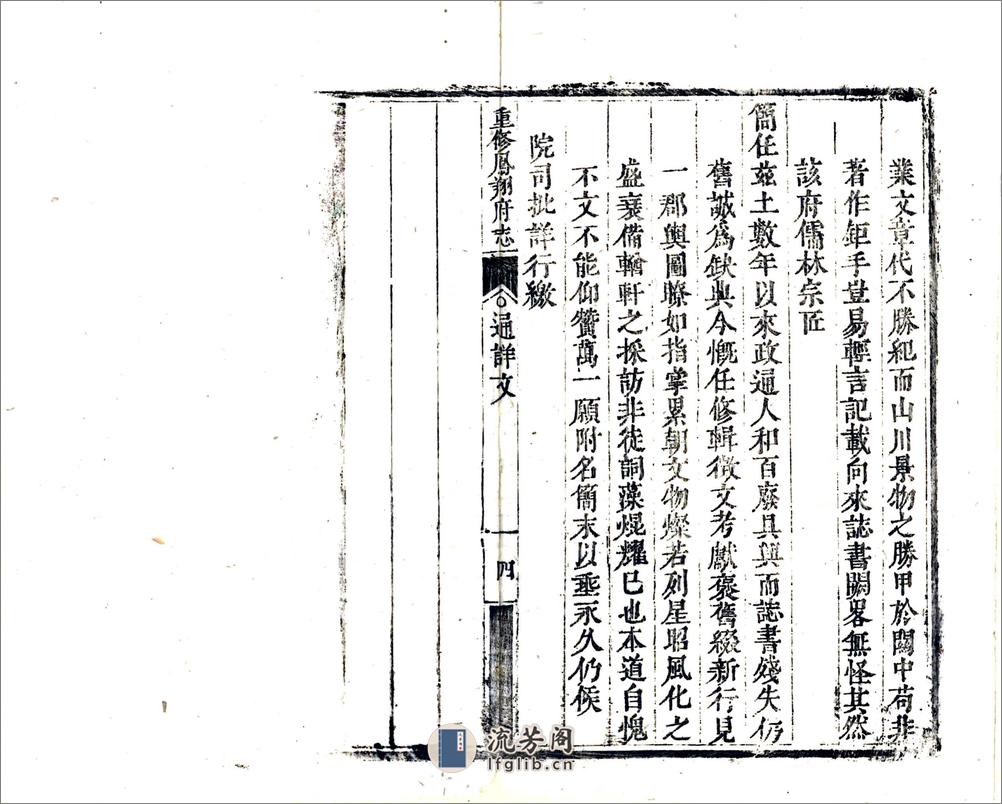 業文章代不勝紀而山川景物之勝甲於關中苟非
著作鉅手豈易輕言記載向來誌書闕畧無怪其然
該府儒林宗匠
簡任兹土數年以來政通人和百廢具興而誌書殘失仍
舊誠為缺典今慨任修輯徵文考獻裒舊綴新行見
一郡輿圖瞭如指掌累朝文物燦若列星昭風化之
盛衰備輶軒之採訪非徒詞藻焜耀已也本道自愧
不文不能仰贊萬一願附名簡末以垂永久仍候
院司批詳行繳
重修鳳翔府志
通詳文
四
流芳阁
lfglib.cn